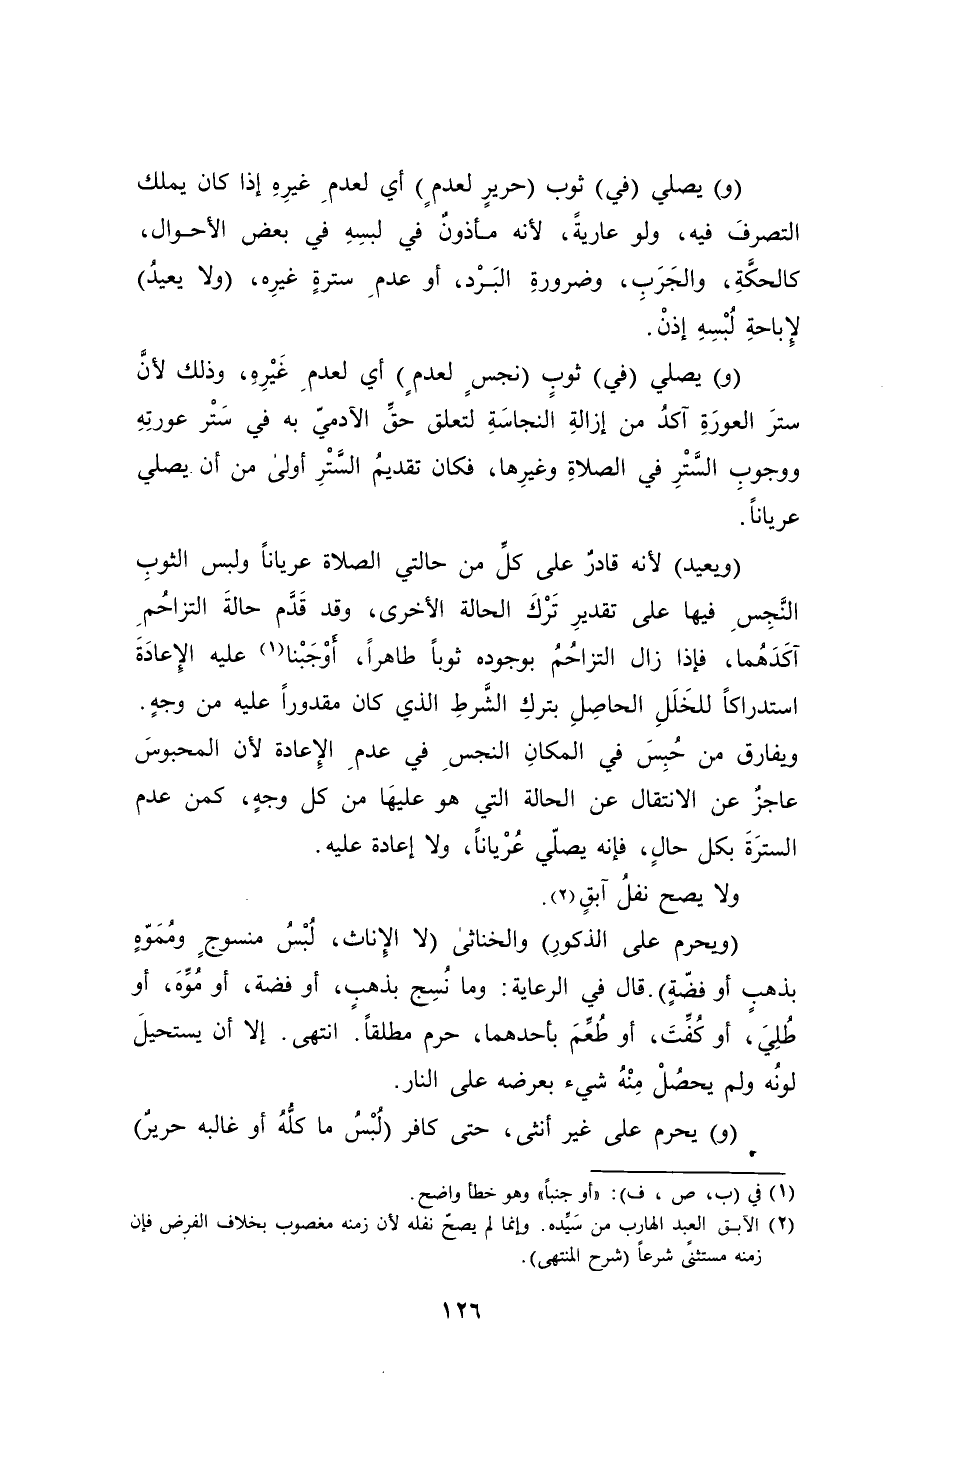 (و) يصلي (في) ثوب (حريرٍ لعدمٍ) أي لعدمِ غيرِهِ إذا كان يملك
التصرفَ فيه، ولو عاريةً، لأنه مأذونٌ في لبسِهِ في بعض الأحوال،
كالحكَّةِ، والجَرَبِ، وضرورةِ البَرْد، أو عدمِ سترةٍ غيرِه، (ولا يعيدُ)
لإِباحةِ لُبْسِهِ إذنْ.
(و) يصلي (في) ثوبٍ (نجسٍ لعدمٍ) أي لعدمِ غَيْرِهِ، وذلك لأنَّ
سترَ العورَةِ آكدُ من إزالةِ النجاسَةِ لتعلق حقِّ الآدميّ به في سَتْر عورتِهِ
ووجوبِ السَّتْرِ في الصلاةِ وغيرِها، فكان تقديمُ السَّتْرِ أولىٰ من أن يصلي
عرياناً.
(ويعيد) لأنه قادرٌ على كلِّ من حالتي الصلاة عرياناً ولبس الثوبِ
النَّجِسِ فيها على تقديرِ تَرْكَ الحالة الأخرى، وقد قَدَّم حالةَ التزاحُمِ
آكَدَهُما، فإذا زال التزاحُمُ بوجوده ثوباً طاهراً، أَوْجَبْنا(١) عليه الإِعادَةَ
استدراكاً للخَلَلِ الحاصِلِ بتركِ الشَّرطِ الذي كان مقدوراً عليه من وجهٍ.
ويفارق من حُبِسَ في المكانِ النجسِ في عدمِ الإِعادة لأن المحبوسَ
عاجزٌ عن الانتقال عن الحالة التي هو عليهَا من كل وجهٍ، كمن عدم
السترَةَ بكل حالٍ، فإنه يصلّي عُرْياناً، ولا إعادة عليه.
ولا يصح نفلُ آبقٍ(٢).
(ويحرم على الذكورِ) والخناثىٰ (لا الإِناث، لُبْسُ منسوجٍ ومُمَوّهٍ
بذهبٍ أو فضّةٍ). قال في الرعاية: وما نُسِج بذهبٍ، أو فضة، أو مُوِّهَ، أو
طُلِيَ، أو كُفِّتَ، أو طُعِّمَ بأحدهما، حرم مطلقاً. انتهى. إلا أن يستحيلَ
لونُه ولم يحصُلْ مِنْهُ شيء بعرضه على النار.
(و) يحرم على غير أنثى، حتى كافر (لُبْسُ ما كلُّهُ أو غالبه حريرٌ)
(١) في (ب، ص، ف): «أو جنباً» وهو خطأ واضح.
(٢) الآبق العبد الهارب من سَيِّده. وإنما لم يصحّ نفله لأن زمنه مغصوب بخلاف الفرض فإن
زمنه مستثنًى شرعاً (شرح المنتهى).
١٢٦